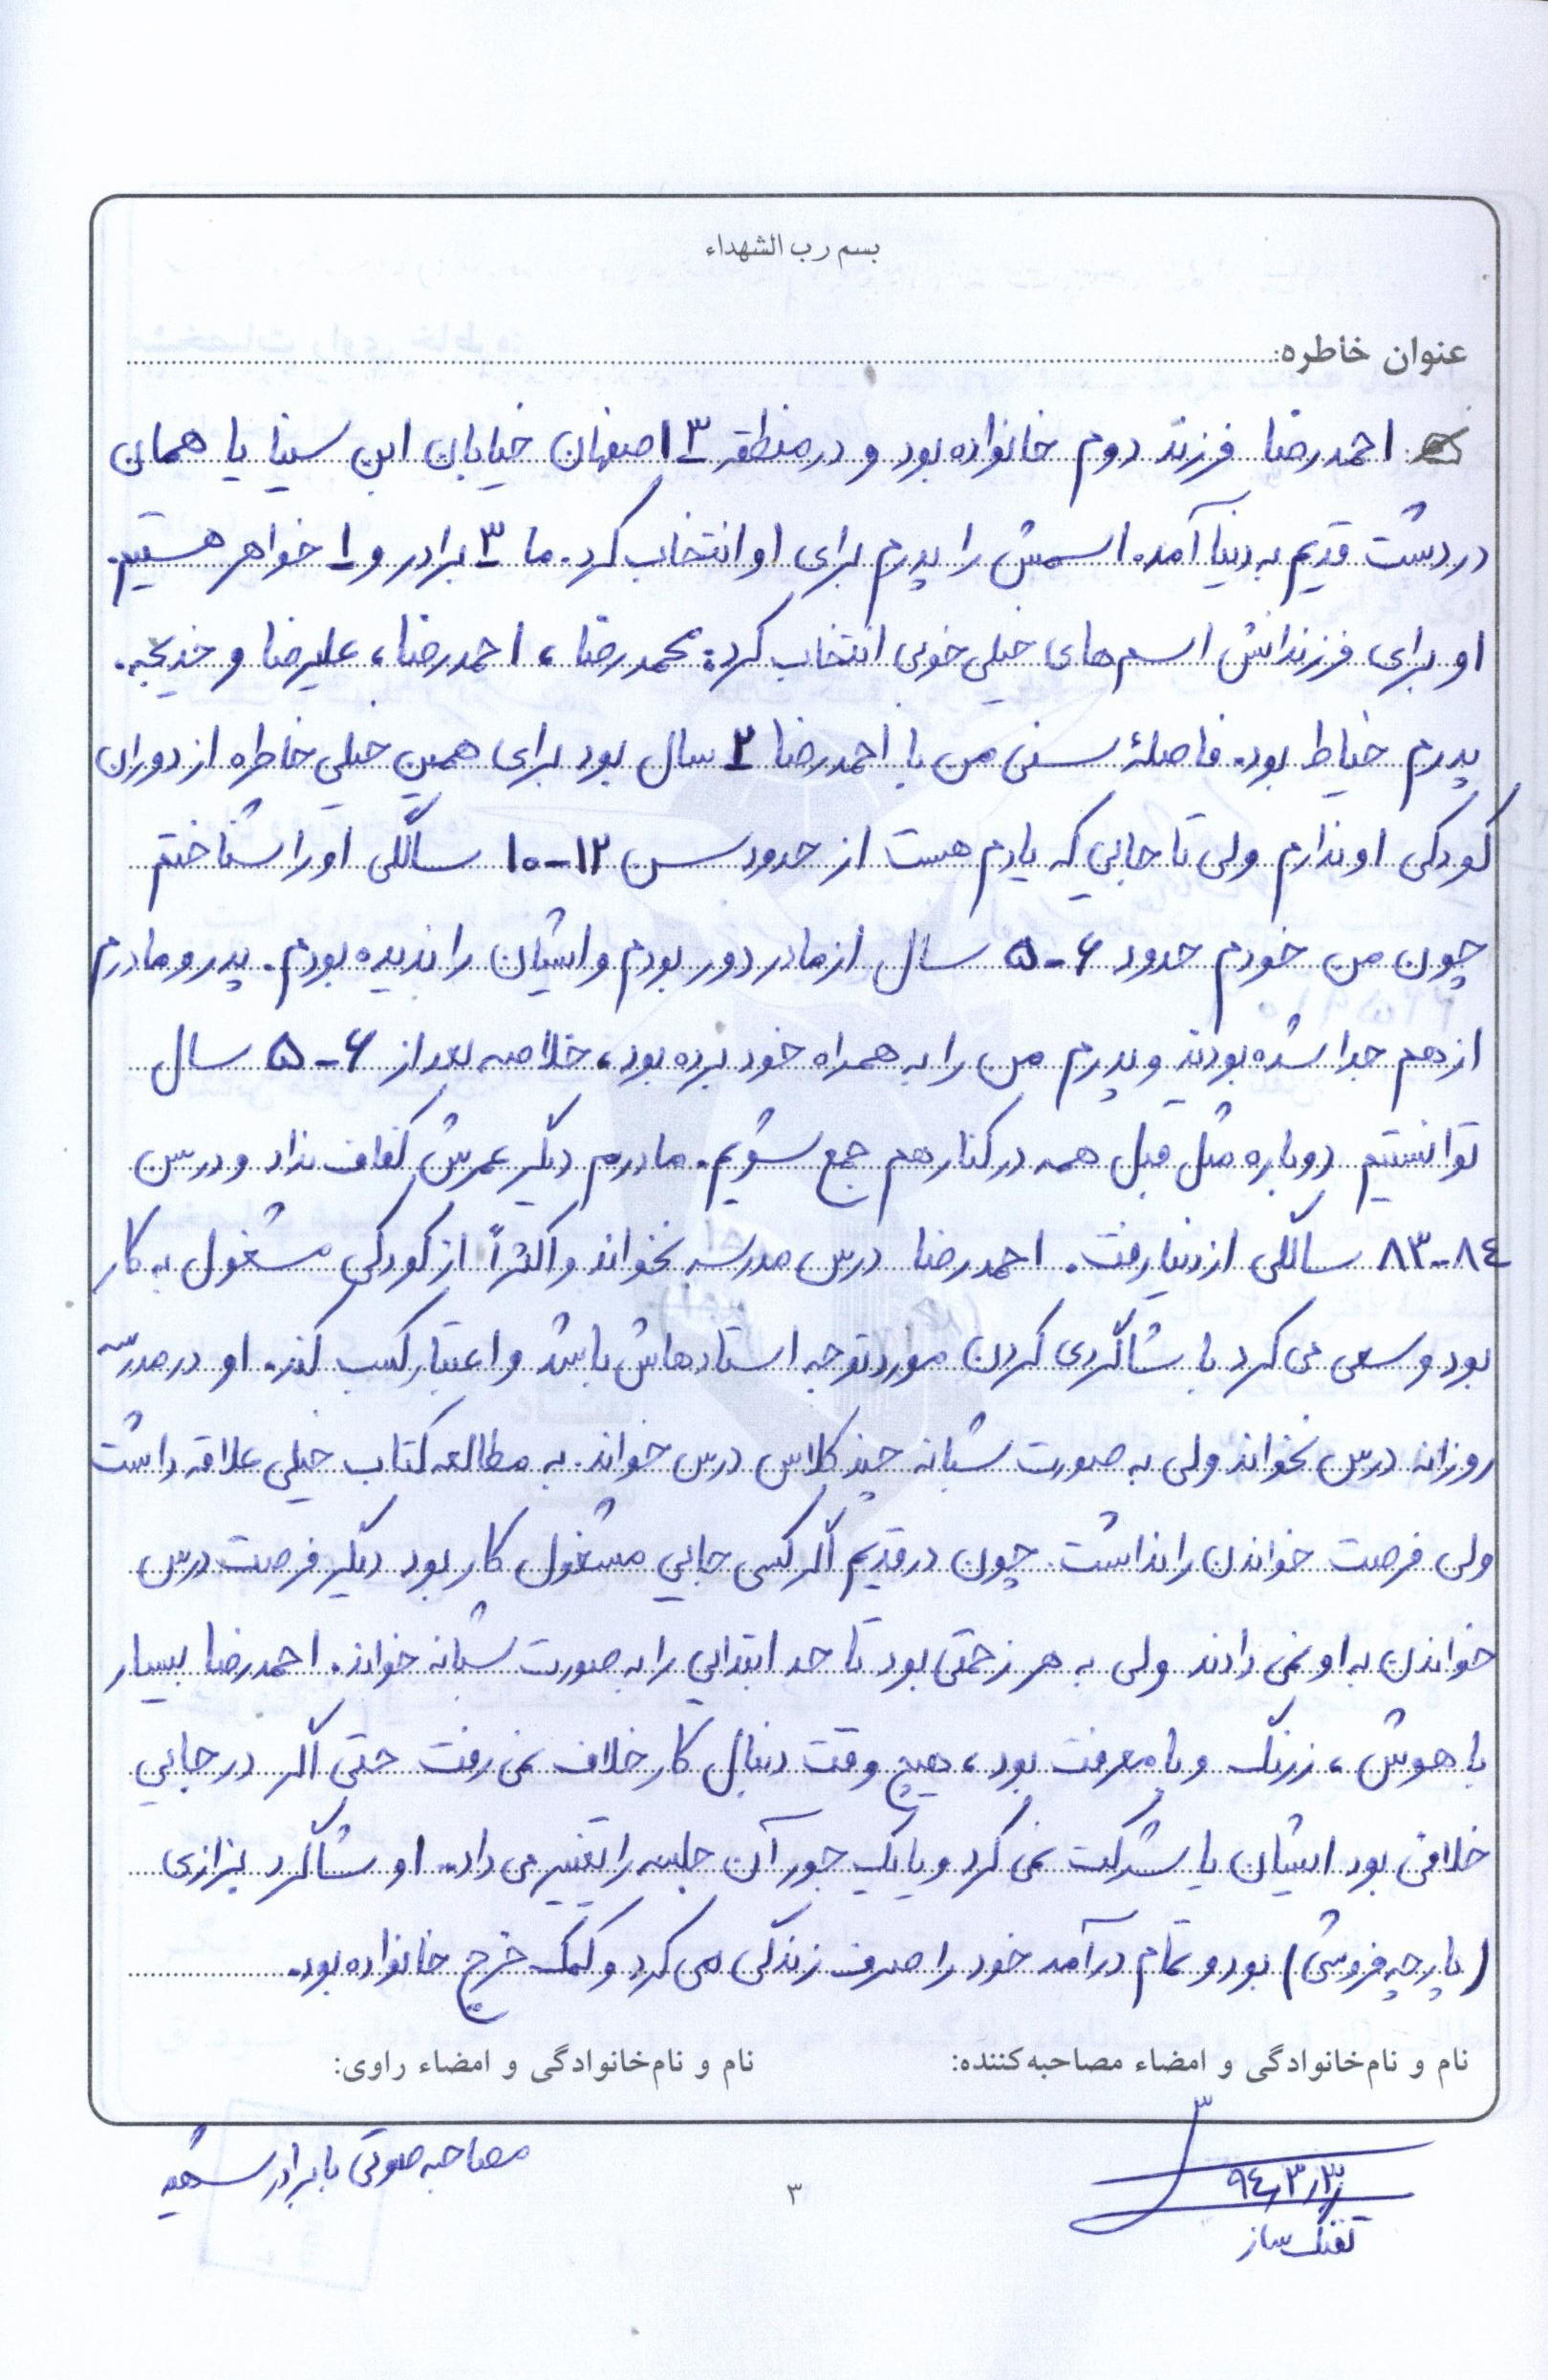 بسم رب الشهداء
عنوان خاطره:
احمدرضا فرزند دوم خانواده بود و در منطقه ۳ اصفهان خیابان ابن سینا یا همان
دردشت قدیم به دنیا آمد. اسمش را پدرم برای او انتخاب کرد. ما ۳ برادر و ۱ خواهر هستیم.
او برای فرزندانش اسم‌های خیلی خوبی انتخاب کرد: محمدرضا، احمدرضا، علیرضا و خدیجه.
پدرم خیاط بود. فاصلهٔ سنی من با احمدرضا ۲ سال بود برای همین خیلی خاطره از دوران
کودکی او ندارم ولی تا جایی که یادم هست از حدود سن ۱۲-۱۰ سالگی او را شناختم
چون من خودم حدود ۶-۵ سال از مادر دور بودم و ایشان را ندیده بودم. پدر و مادرم
از هم جدا شده بودند و پدرم من را به همراه خود برده بود، خلاصه بعد از ۶-۵ سال
توانستیم دوباره مثل قبل همه در کنار هم جمع شویم. مادرم دیگر عمرش کفاف نداد و در سن
۸۴-۸۳ سالگی از دنیا رفت. احمدرضا درس مدرسه نخواند و اکثراً از کودکی مشغول به کار
بود و سعی می کرد با شاگردی کردن مورد توجه استادهاش باشد و اعتبار کسب کند. او در مدرسه
روزانه درس نخواند ولی به صورت شبانه چند کلاس درس خواند. به مطالعه کتاب خیلی علاقه داشت
ولی فرصت خواندن را نداشت. چون در قدیم اگر کسی جایی مشغول کار بود دیگر فرصت درس
خواندن به او نمی دادند ولی به هر زحمتی بود تا حد ابتدایی را به صورت شبانه خواند. احمدرضا بسیار
با هوش، زرنگ و با معرفت بود، هیچ وقت دنبال کار خلاف نمی رفت حتی اگر در جایی
خلافی بود ایشان یا شرکت نمی کرد و یا یک جور آن جلسه را تغییر می داد. او شاگرد بزازی
(پارچه فروشی) بود و تمام درآمد خود را صرف زندگی می کرد و کمک خرج خانواده بود.
نام و نام‌خانوادگی و امضاء مصاحبه‌کننده: نام و نام‌خانوادگی و امضاء راوی:
مصاحبه صوتی با برادر شهید
۹۴٫۳٫۳
تفنگ ساز
۳